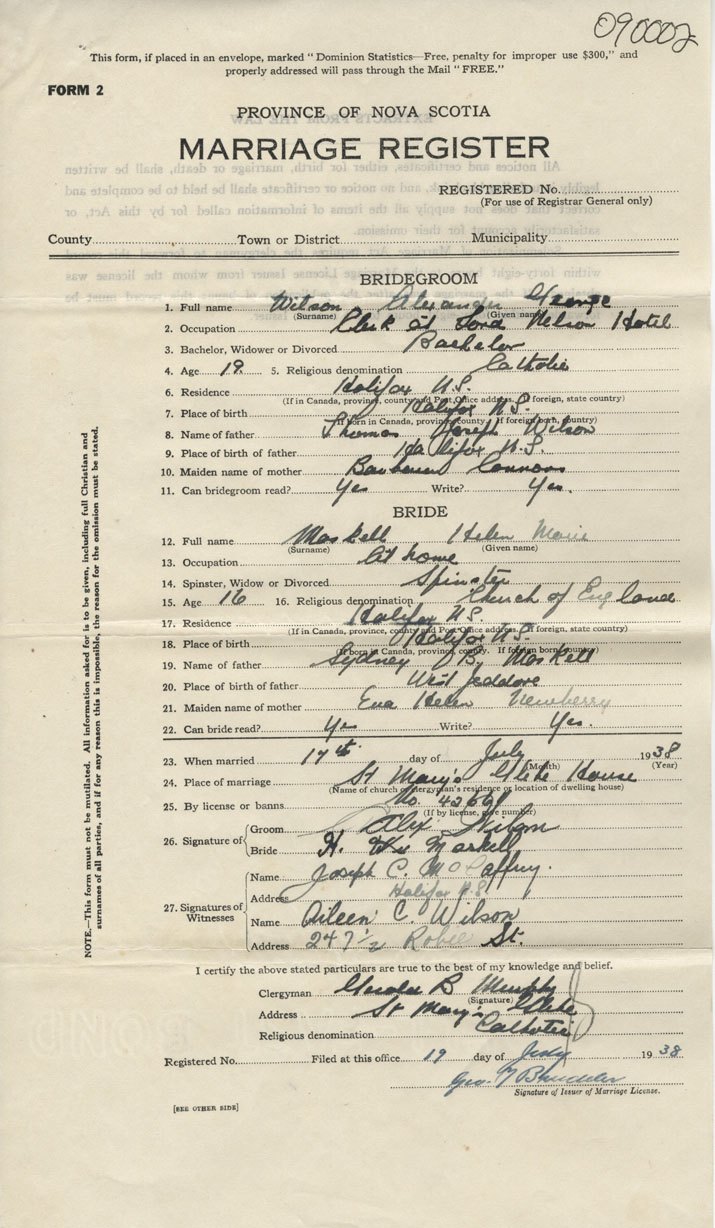 090002
This form, if placed in an envelope, marked "Dominion Statistics—Free, penalty for improper use $300," and
properly addressed will pass through the Mail "FREE."
FORM 2
PROVINCE OF NOVA SCOTIA
MARRIAGE REGISTER
REGISTERED No.
(For use of Registrar General only)
County Town or District Municipality
BRIDEGROOM
1. Full name Wilson Alexander George
(Surname) (Given name)
2. Occupation Clerk at Lord Nelson Hotel
3. Bachelor, Widower or Divorced Bachelor
4. Age 19 5. Religious denomination Catholic
6. Residence Halifax N.S.
(If in Canada, province, county and Post Office address. If foreign, state country)
7. Place of birth Halifax N.S.
(If born in Canada, province, county. If foreign born, country)
8. Name of father Thomas Joseph Wilson
9. Place of birth of father Halifax N.S.
10. Maiden name of mother Connors
11. Can bridegroom read? Yes Write? Yes.
BRIDE
12. Full name Maskell Helen Marie
(Surname) (Given name)
13. Occupation At home
14. Spinster, Widow or Divorced Spinster
15. Age 16 16. Religious denomination Church of England
17. Residence Halifax N.S.
(If in Canada, province, county and Post Office address. If foreign, state country)
18. Place of birth Halifax N.S.
(If born in Canada, province, county. If foreign born, country)
19. Name of father Sydney B. Maskell
20. Place of birth of father West Jeddore
21. Maiden name of mother Eva Helen Newberry
22. Can bride read? Yes Write? Yes.
23. When married 17th day of July 1938
(Month) (Year)
24. Place of marriage St Mary's Glebe House
(Name of church or clergyman's residence or location of dwelling house)
25. By license or banns No.
(If by license, give number)
26. Signature of Groom Alex Wilson
Bride H. Maskell
27. Signatures of Witnesses Name Joseph C. McCaffrey.
Address Halifax N.S.
Name Aileen C. Wilson
Address 247 1/2 Robie St.
I certify the above stated particulars are true to the best of my knowledge and belief.
Clergyman Gerald B Murphy
(Signature)
Address St Mary's Glebe
Religious denomination Catholic
Registered No. Filed at this office 19 day of July 1938
Geo.
Signature of Issuer of Marriage License.
[SEE OTHER SIDE]
NOTE.—This form must not be mutilated. All information asked for is to be given, including full Christian and
surnames of all parties, and if for any reason this is impossible, the reason for the omission must be stated.